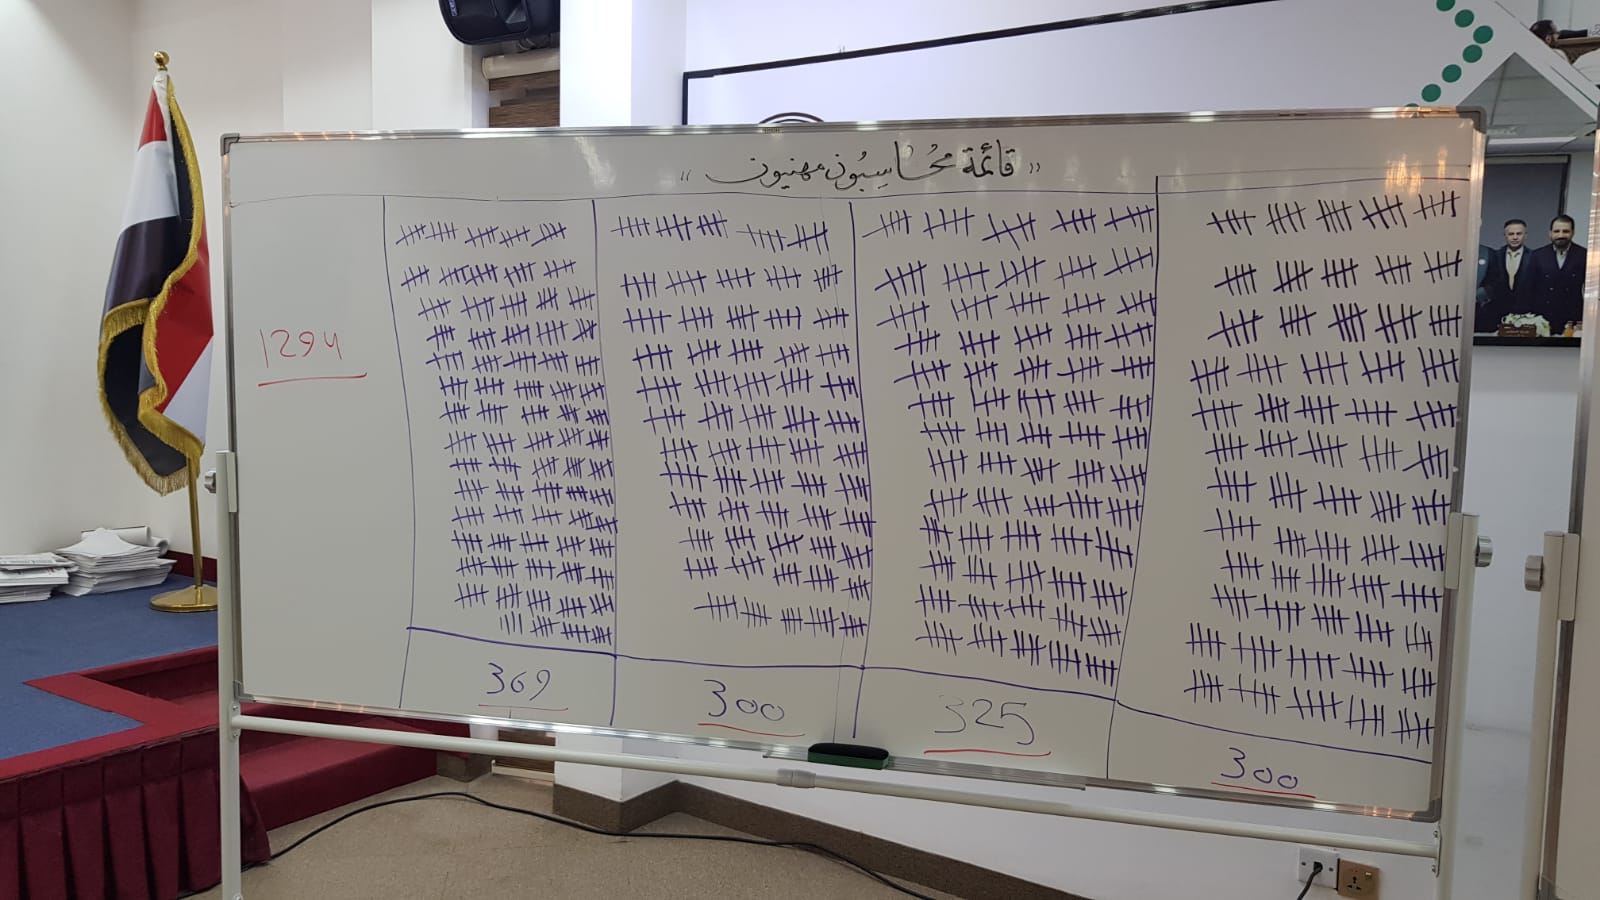 " قائمة محاسبون مهنيون "
1294
369
300
325
300